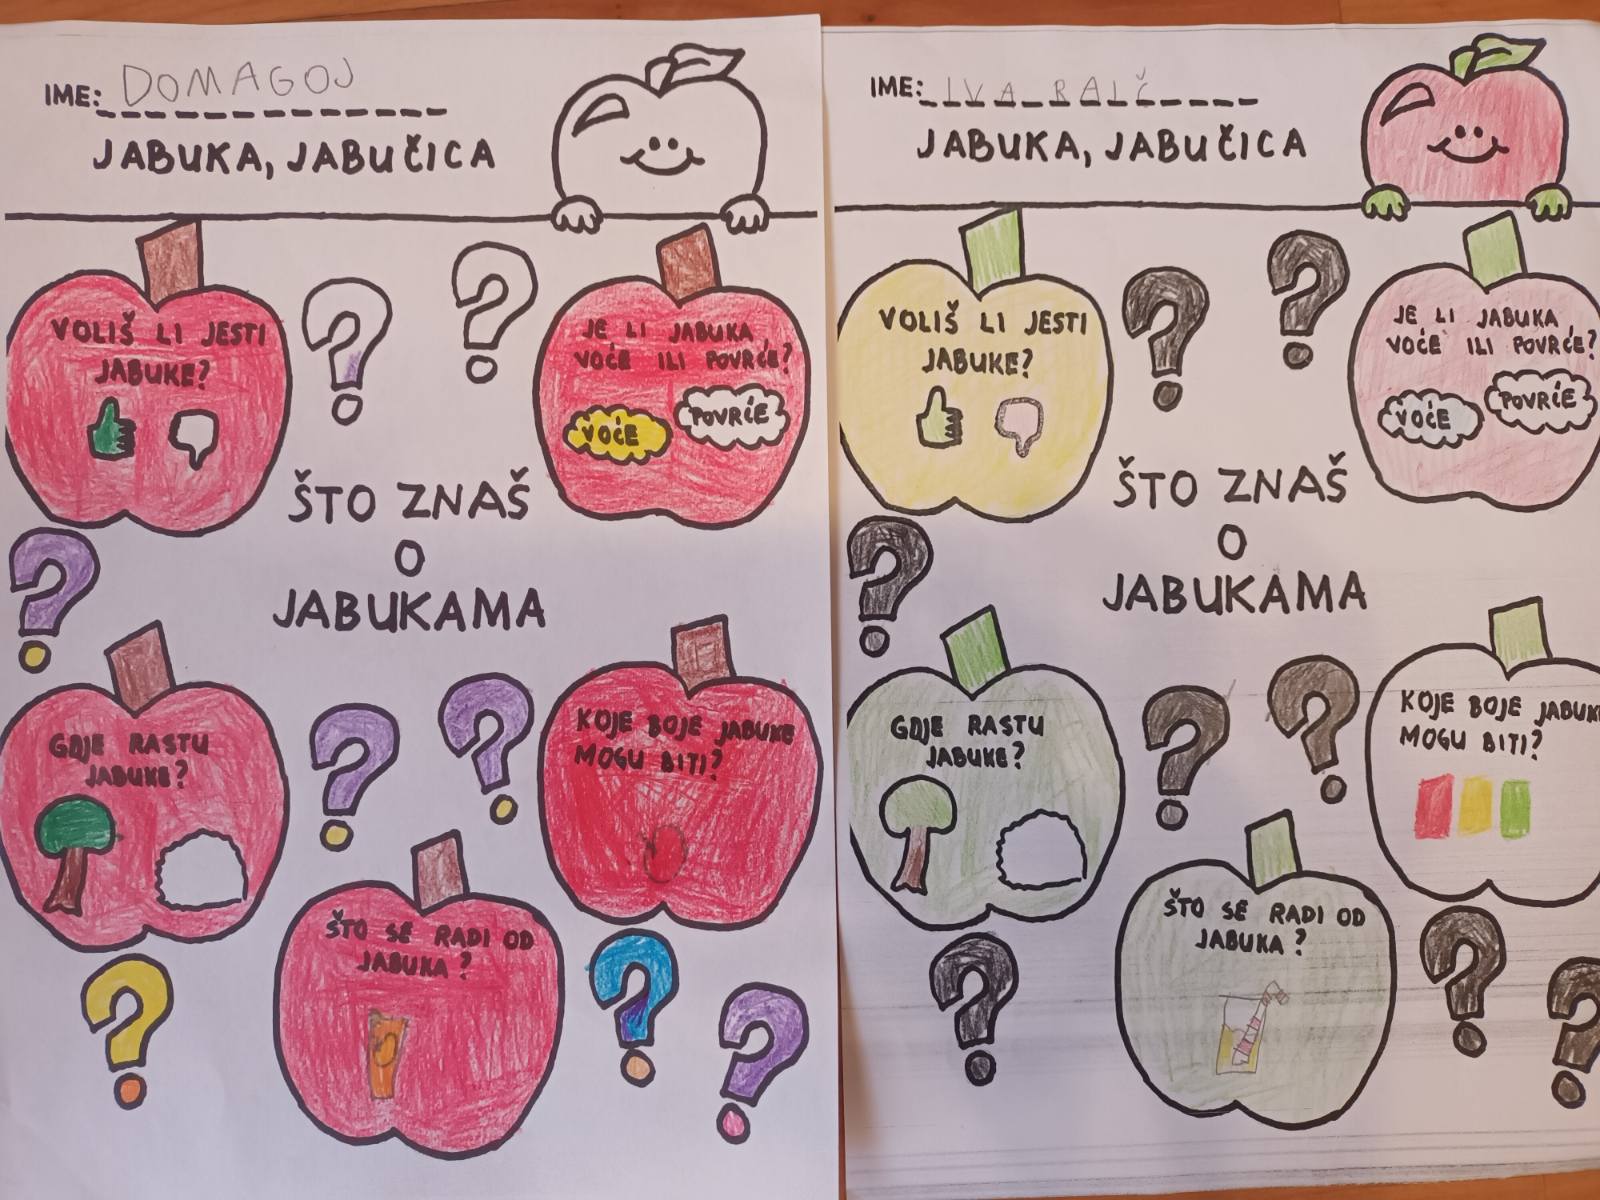 IME: DOMAGOJ
JABUKA, JABUČICA
VOLIŠ LI JESTI
JABUKE?
JE LI JABUKA
VOĆE ILI POVRĆE?
VOĆE
POVRĆE
ŠTO ZNAŠ
O
JABUKAMA
GDJE RASTU
JABUKE?
KOJE BOJE JABUKE
MOGU BITI?
ŠTO SE RADI OD
JABUKA?
IME: IVA RAIČ
JABUKA, JABUČICA
VOLIŠ LI JESTI
JABUKE?
JE LI JABUKA
VOĆE ILI POVRĆE?
VOĆE
POVRĆE
ŠTO ZNAŠ
O
JABUKAMA
GDJE RASTU
JABUKE?
KOJE BOJE JABUKE
MOGU BITI?
ŠTO SE RADI OD
JABUKA?